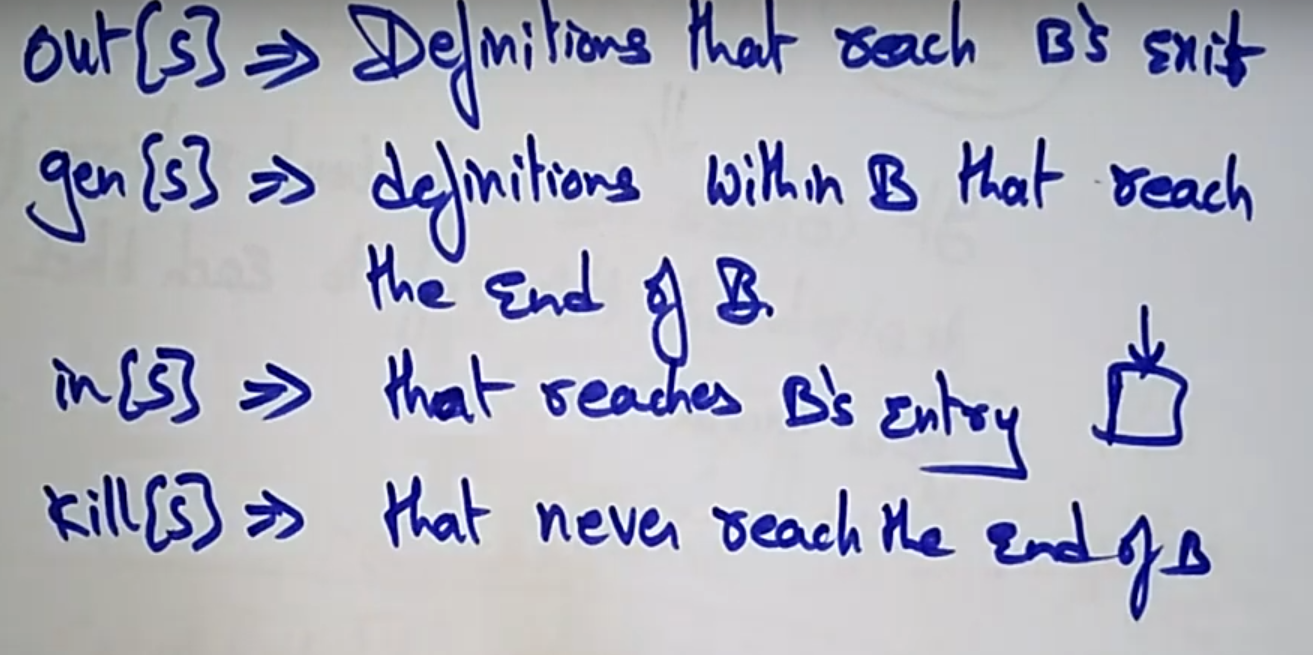 out[s] ⇒ Definitions that reach B's exit
gen[s] ⇒ definitions within B that reach
the end of B.
in[s] ⇒ that reaches B's entry
kill[s] ⇒ that never reach the end of B